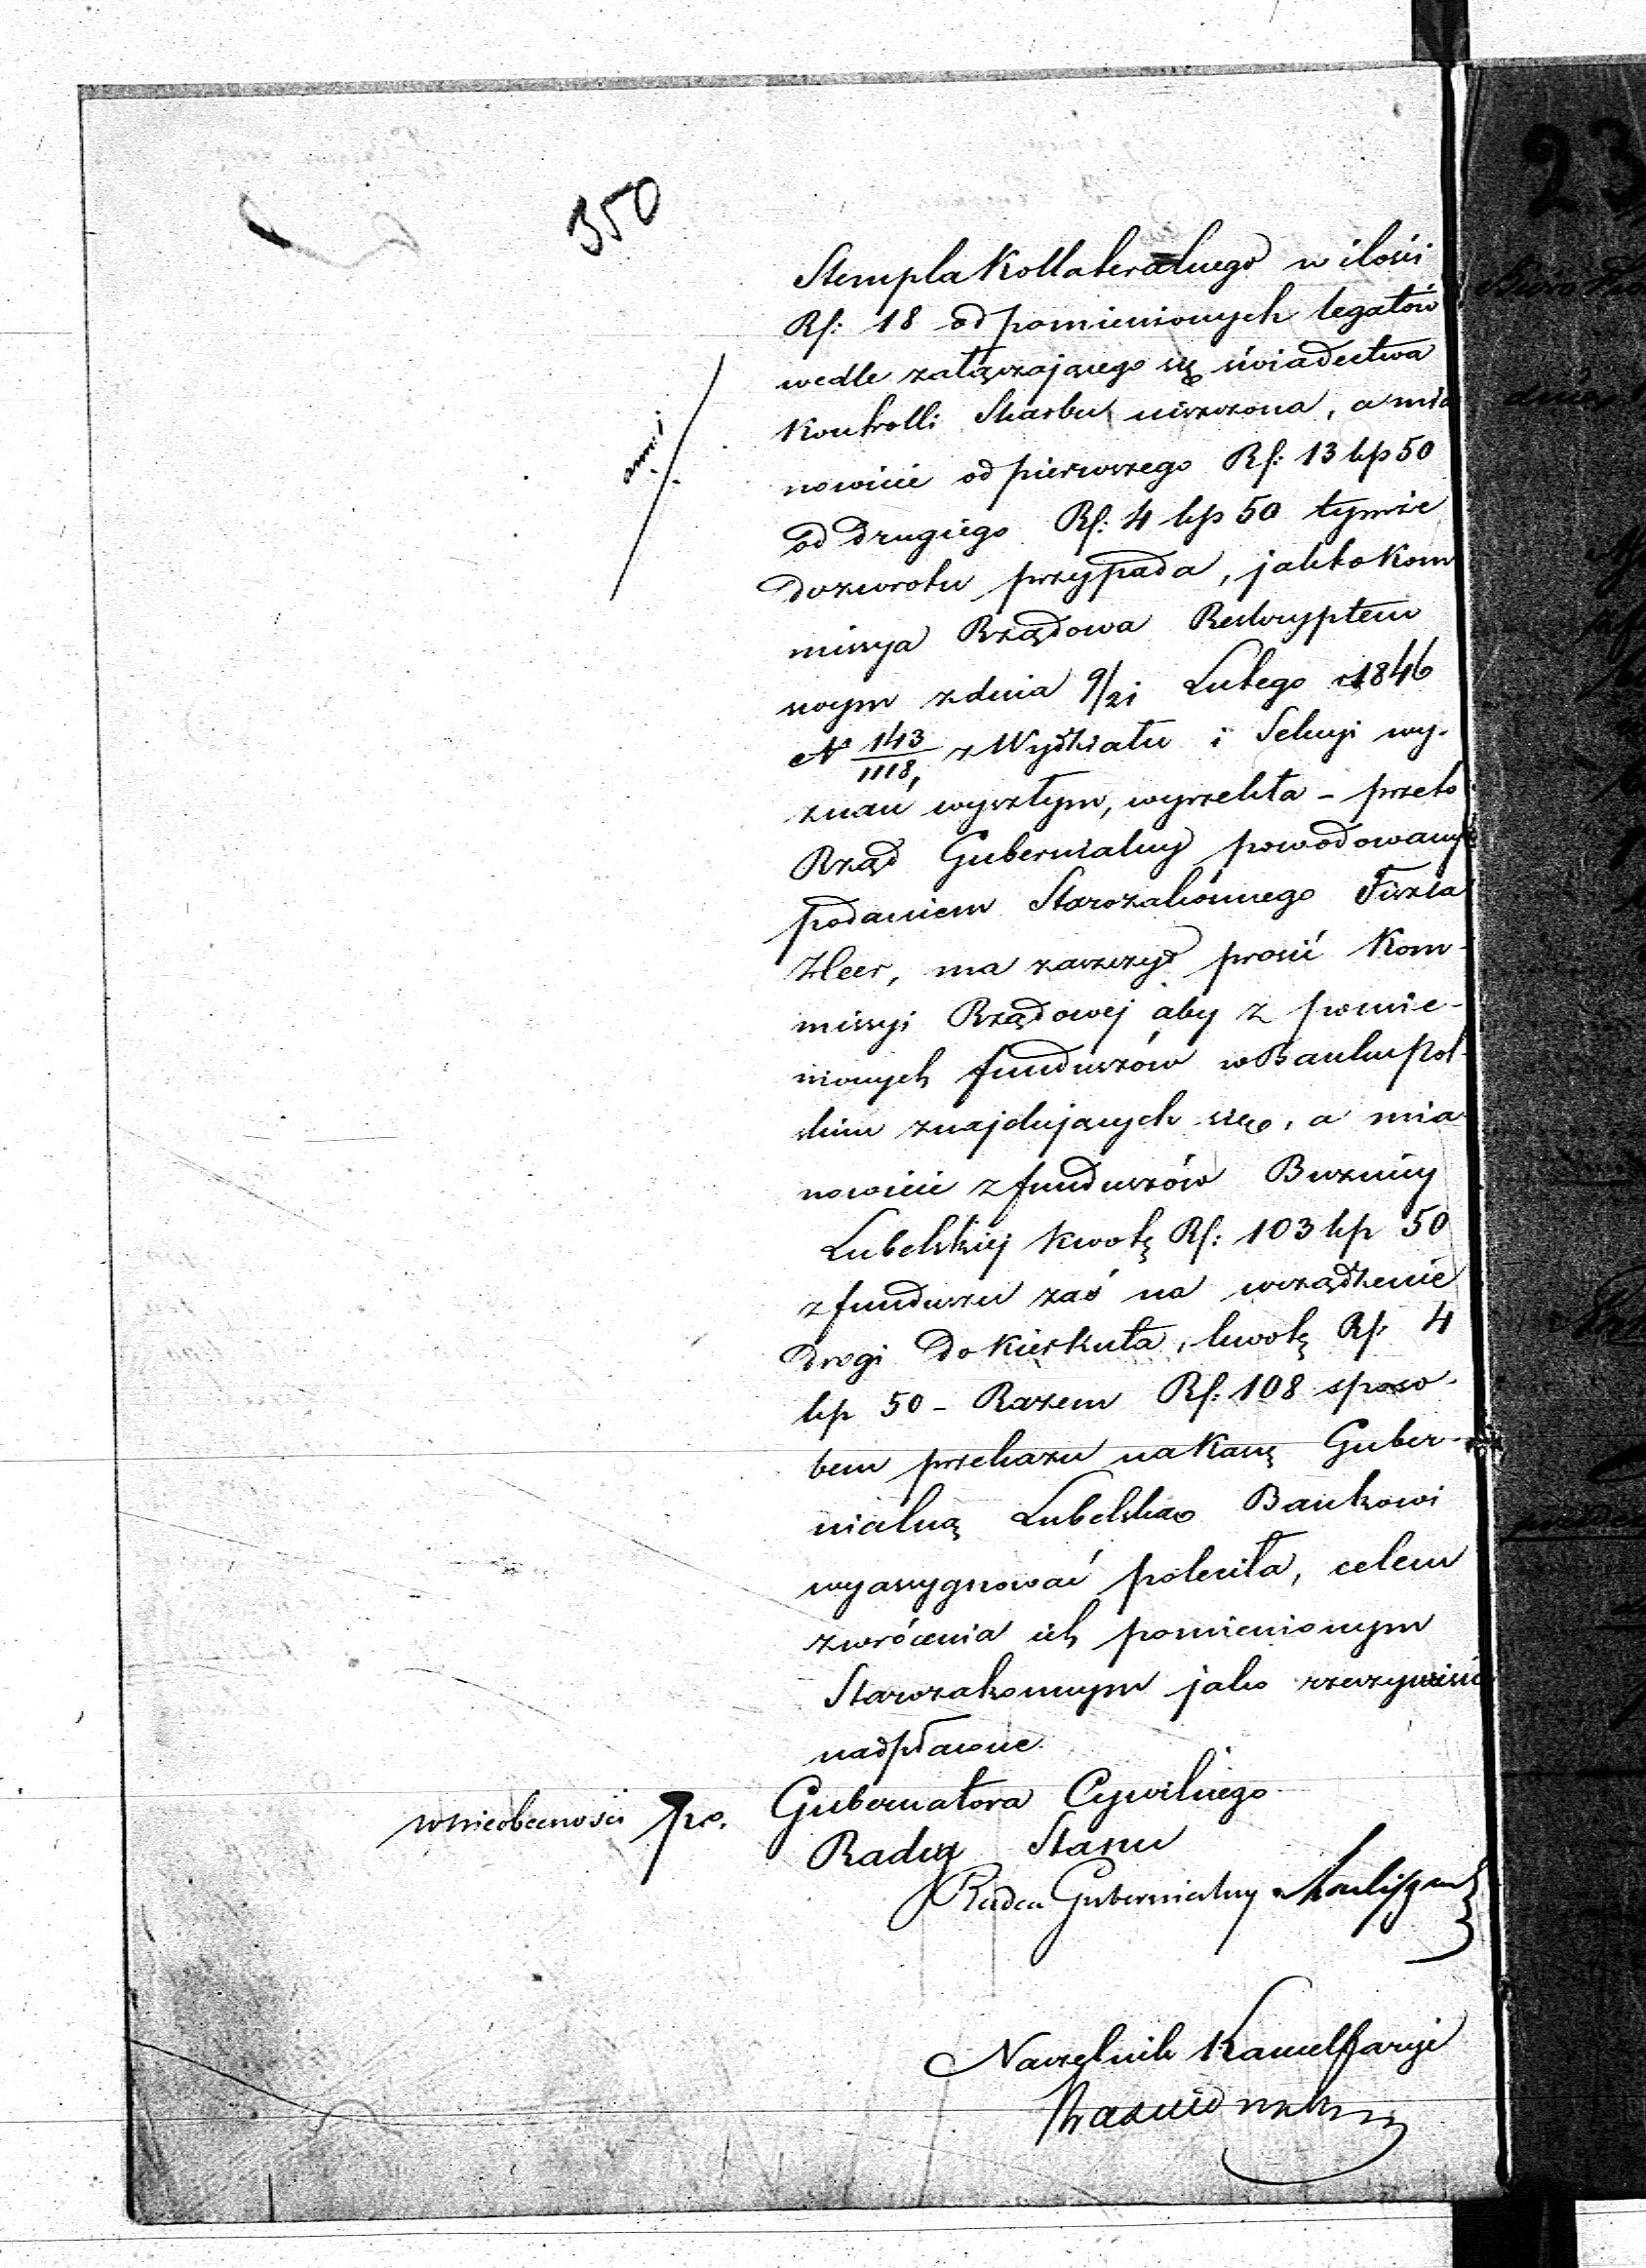 350
Stempla Kollateralnego w ilości
Rs: 18 od pomienionych legatów
wedle załączającego się świadectwa
Kontrolli Skarbu uiszczona, a mia
nowicie od pierwszego Rs: 13 kp 50
od drugiego Rs: 4 kp 50 tymże
do zwrotu przypada, jak to Kom
missya Rządowa Reskryptem
swym z dnia 9/21 Lutego r 1846
N 143/1118, z Wydziału i Sekcyi wy-
znań wyszłym, wyrzekła – przeto
Rząd Gubernialny powodowany
podaniem Starozakonnego
Heer, ma zaszczyt prosić Kom-
missyi Rządowej aby z pomie-
nionych funduszów w Banku Pol-
skim znajdujących się, a mia
nowicie z funduszów Bużnicy
Lubelskiej kwotę Rs: 103 kp 50
z funduszu zaś na urządzenie
drogi do Kierkuta, kwotę Rs 4
kp 50 – Razem Rs: 108 sposo-
bem przekazu na Kassę Guber-
nialną Lubelską Bankowi
wyassygnować poleciła, celem
zwrócenia ich pomienionym
Starozakonnym jako rzeczywiście
nadpłacone.
w nieobecności po. Gubernatora Cywilnego
Radcy Stanu
Radca Gubernialny
Naczelnik Kancellaryi